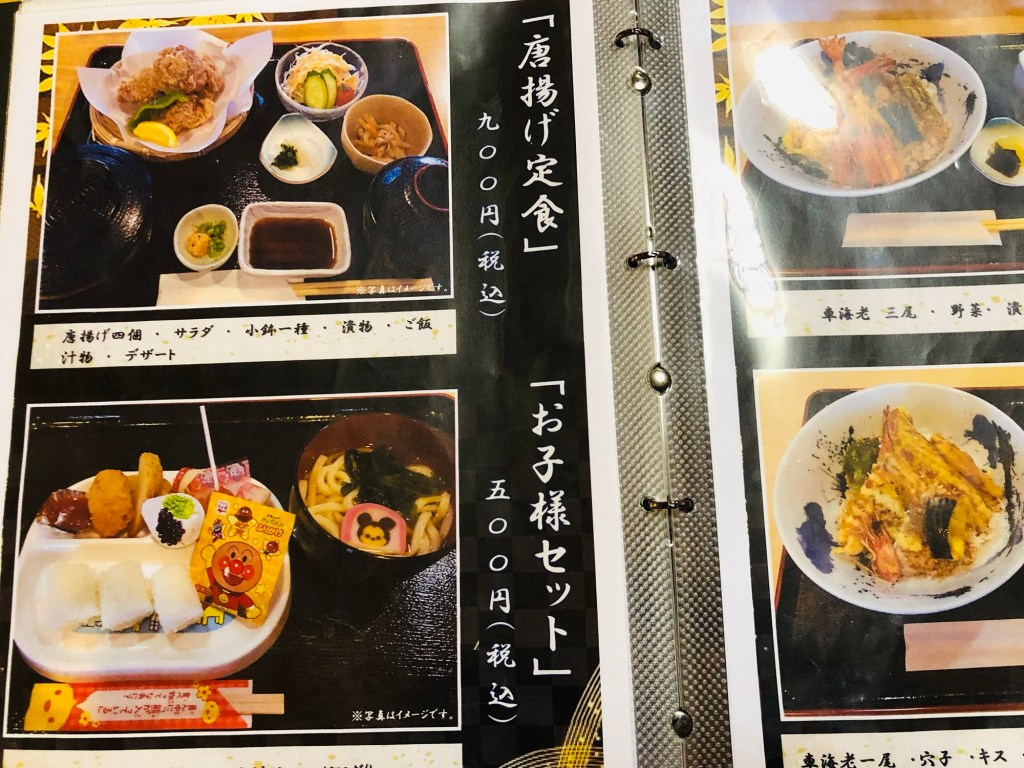 「唐揚げ定食」
九〇〇円(税込)
※写真はイメージです。
唐揚げ四個 ・ サラダ ・ 小鉢一種 ・ 漬物 ・ ご飯
汁物 ・ デザート
「お子様セット」
五〇〇円(税込)
※写真はイメージです。
車海老 三尾 ・ 野菜・ 漬
車海老一尾 ・穴子 ・キス